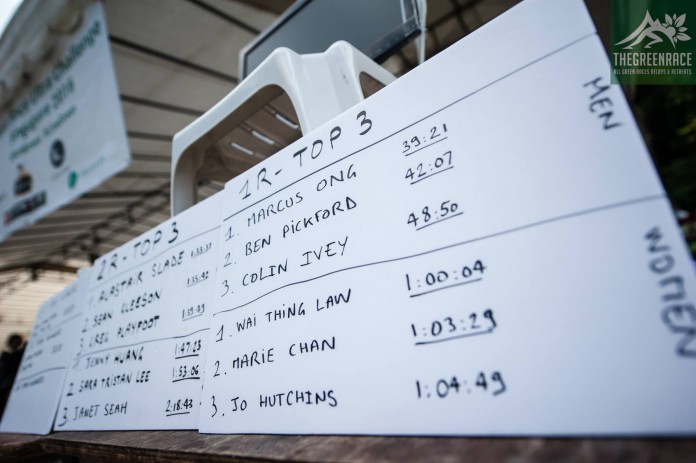 THEGREENRACE
ALL GREEN RACES RELAYS & RETREATS
Singapore 2015
1R - TOP 3
MEN
1. MARCUS ONG 39:21
2. BEN PICKFORD 42:07
3. COLIN IVEY 48:50
WOMEN
1. WAI THING LAW 1:00:04
2. MARIE CHAN 1:03:29
3. JO HUTCHINS 1:04:49
2R - TOP 3
1. ALASTAIR SLADE
2. SEAN GLEESON
3. GREG PLAYFOOT
1. JENNY HUANG 1:47:23
2. SARA TRISTAN LEE 1:53:06
3 JANET SEAH 2:18:43